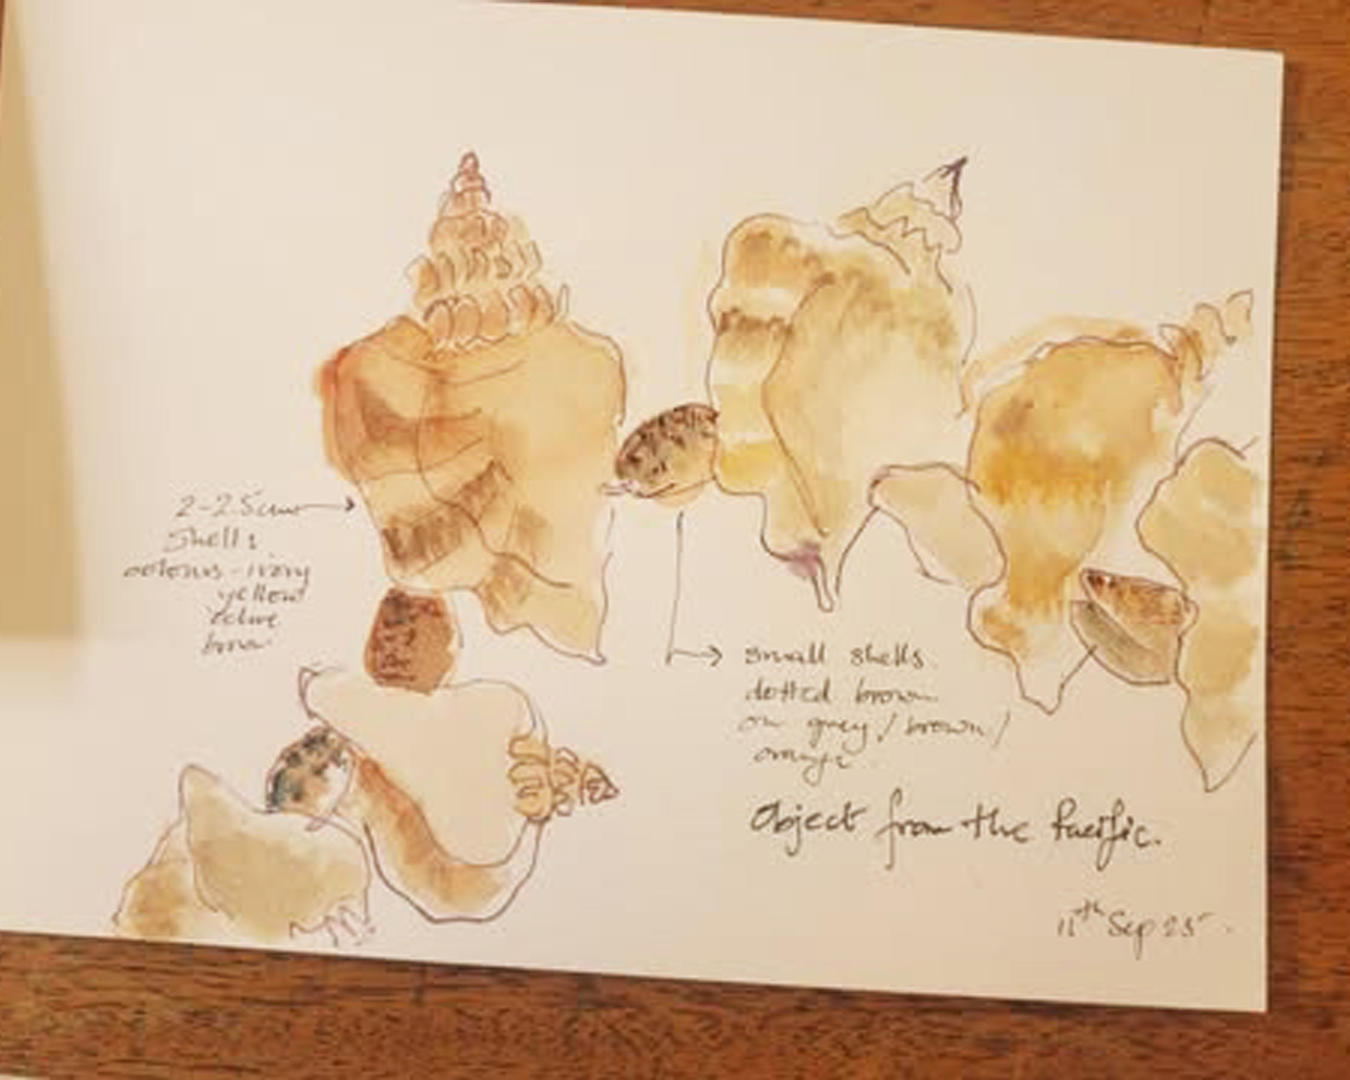 2-2.5cm
Shells
colours - ivory
yellow
olive
brown
small shells
dotted brown
on grey / brown /
orange
Object from the Pacific.
11th Sep 25